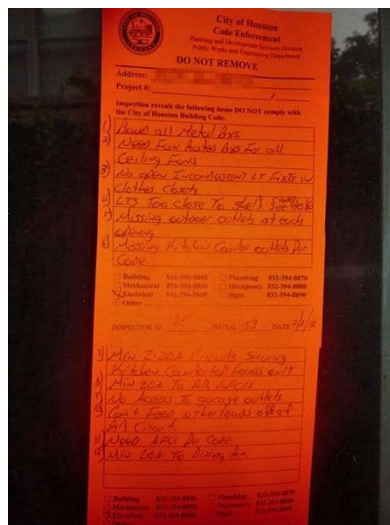 City of Houston
Code Enforcement
Planning and Development Services Division
Public Works and Engineering Department
DO NOT REMOVE
Address:
Project #:
Inspection reveals the following items DO NOT comply with
the City of Houston Building Code.
1) Bond all Metal Bxs
2) NEED FAN Rated Bxs For all
Ceiling Fans
3) No open Incandescent LT Fixts in
Clothes closets
4) LTS Too Close To Shelf
5) Missing outdoor outlets at each
opening
6) Missing Kitchen Counter outlets Per
Code
Building 832-394-8840 Plumbing 832-394-8870
Mechanical 832-394-8850 Occupancy 832-394-8880
Electrical 832-394-8860 Signs 832-394-8890
Other
INSPECTOR ID INITIAL DATE
7) Min 2-20A Circuits Serving
Kitchen Countertop Loads only
8) Min 20A To BR GFCIs
9) No Access To garage outlets
10) Can't Feed other loads off of
BR Circuit
11) NEED AFCI Per Code
12) Min 20A To Dining Rm.
Building 832-394-8840 Plumbing 832-394-8870
Mechanical 832-394-8850 Occupancy 832-394-8880
Electrical 832-394-8860 Signs 832-394-8890